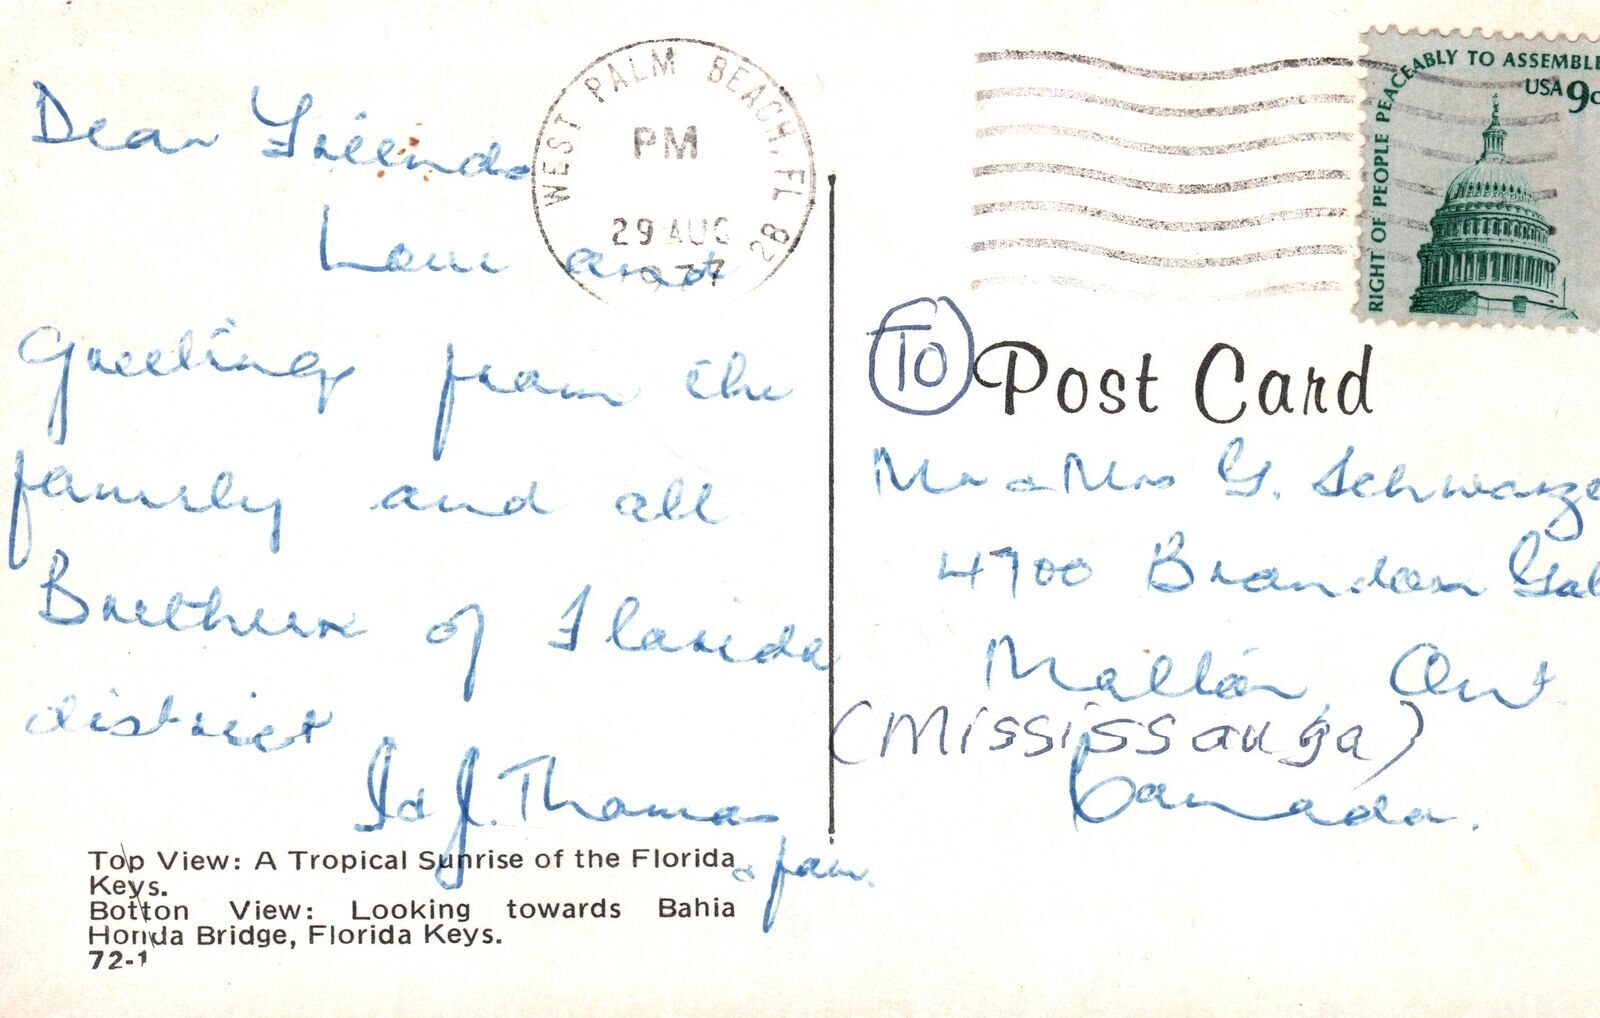 WEST PALM BEACH, FL 82
PM
29 AUG
1977
RIGHT OF PEOPLE PEACEABLY TO ASSEMBLE
USA 9c
Dear Friends
Love and
Greetings from the
family and all
Brethern of Florida
district
J. Thomas
& fam.
Top View: A Tropical Sunrise of the Florida
Keys.
Botton View: Looking towards Bahia
Honda Bridge, Florida Keys.
72-1
TO
Post Card
Mr & Mrs G. Schwarze
4700 Brandon
Malton, Ont
(Mississauga)
Canada.